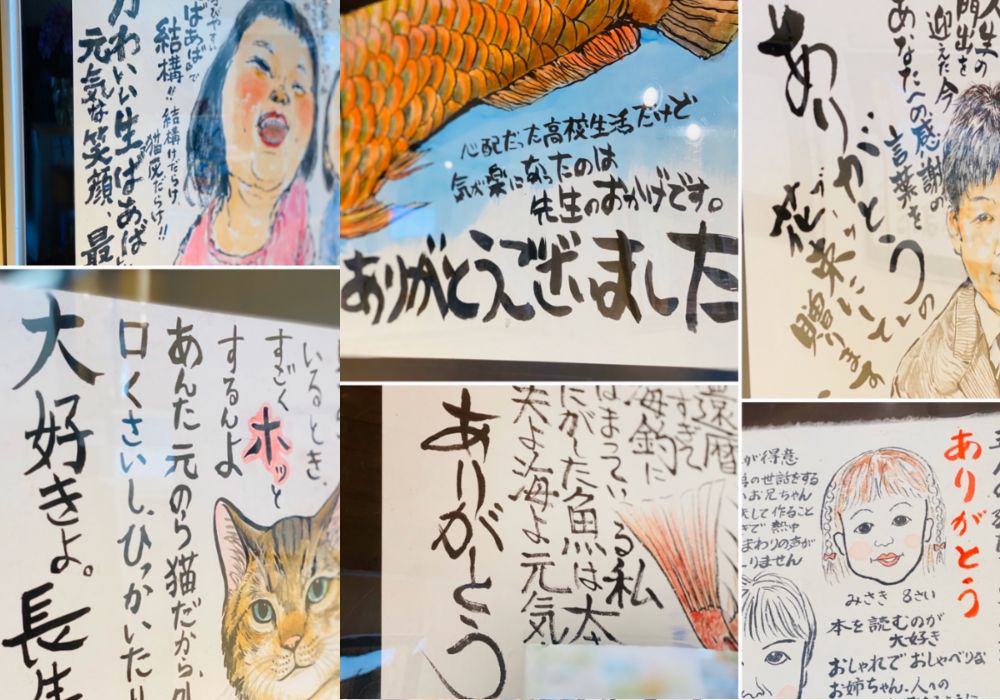 呼びやすい
ばあば」で
結構!!
結構けだらけ
猫灰だらけ!!
わいい生ばあば"
元気な笑顔、最
心配だった高校生活だけど
気が楽になったのは
先生のおかげです。
ありがとうございました
人生の
門出を
迎えた今
あなたへの感謝の
言葉を
ありがとうの
花
贈ります
いるとき、
すごくホッと
するんよ
あんた元のら猫だから、外
口くさいし、ひっかいたり
大好きよ。長生
還暦
すぎて
海釣に
はまっている私
にがした魚は大
夫よ海よ元気
ありがとう
ありがとう
が得意
の世話をする
お兄ちゃん
して作ること
で熱中
まわりの声が
りません
みさき 8さい
本を読むのが
大好き
おしゃれでおしゃべりな
お姉ちゃん。人への